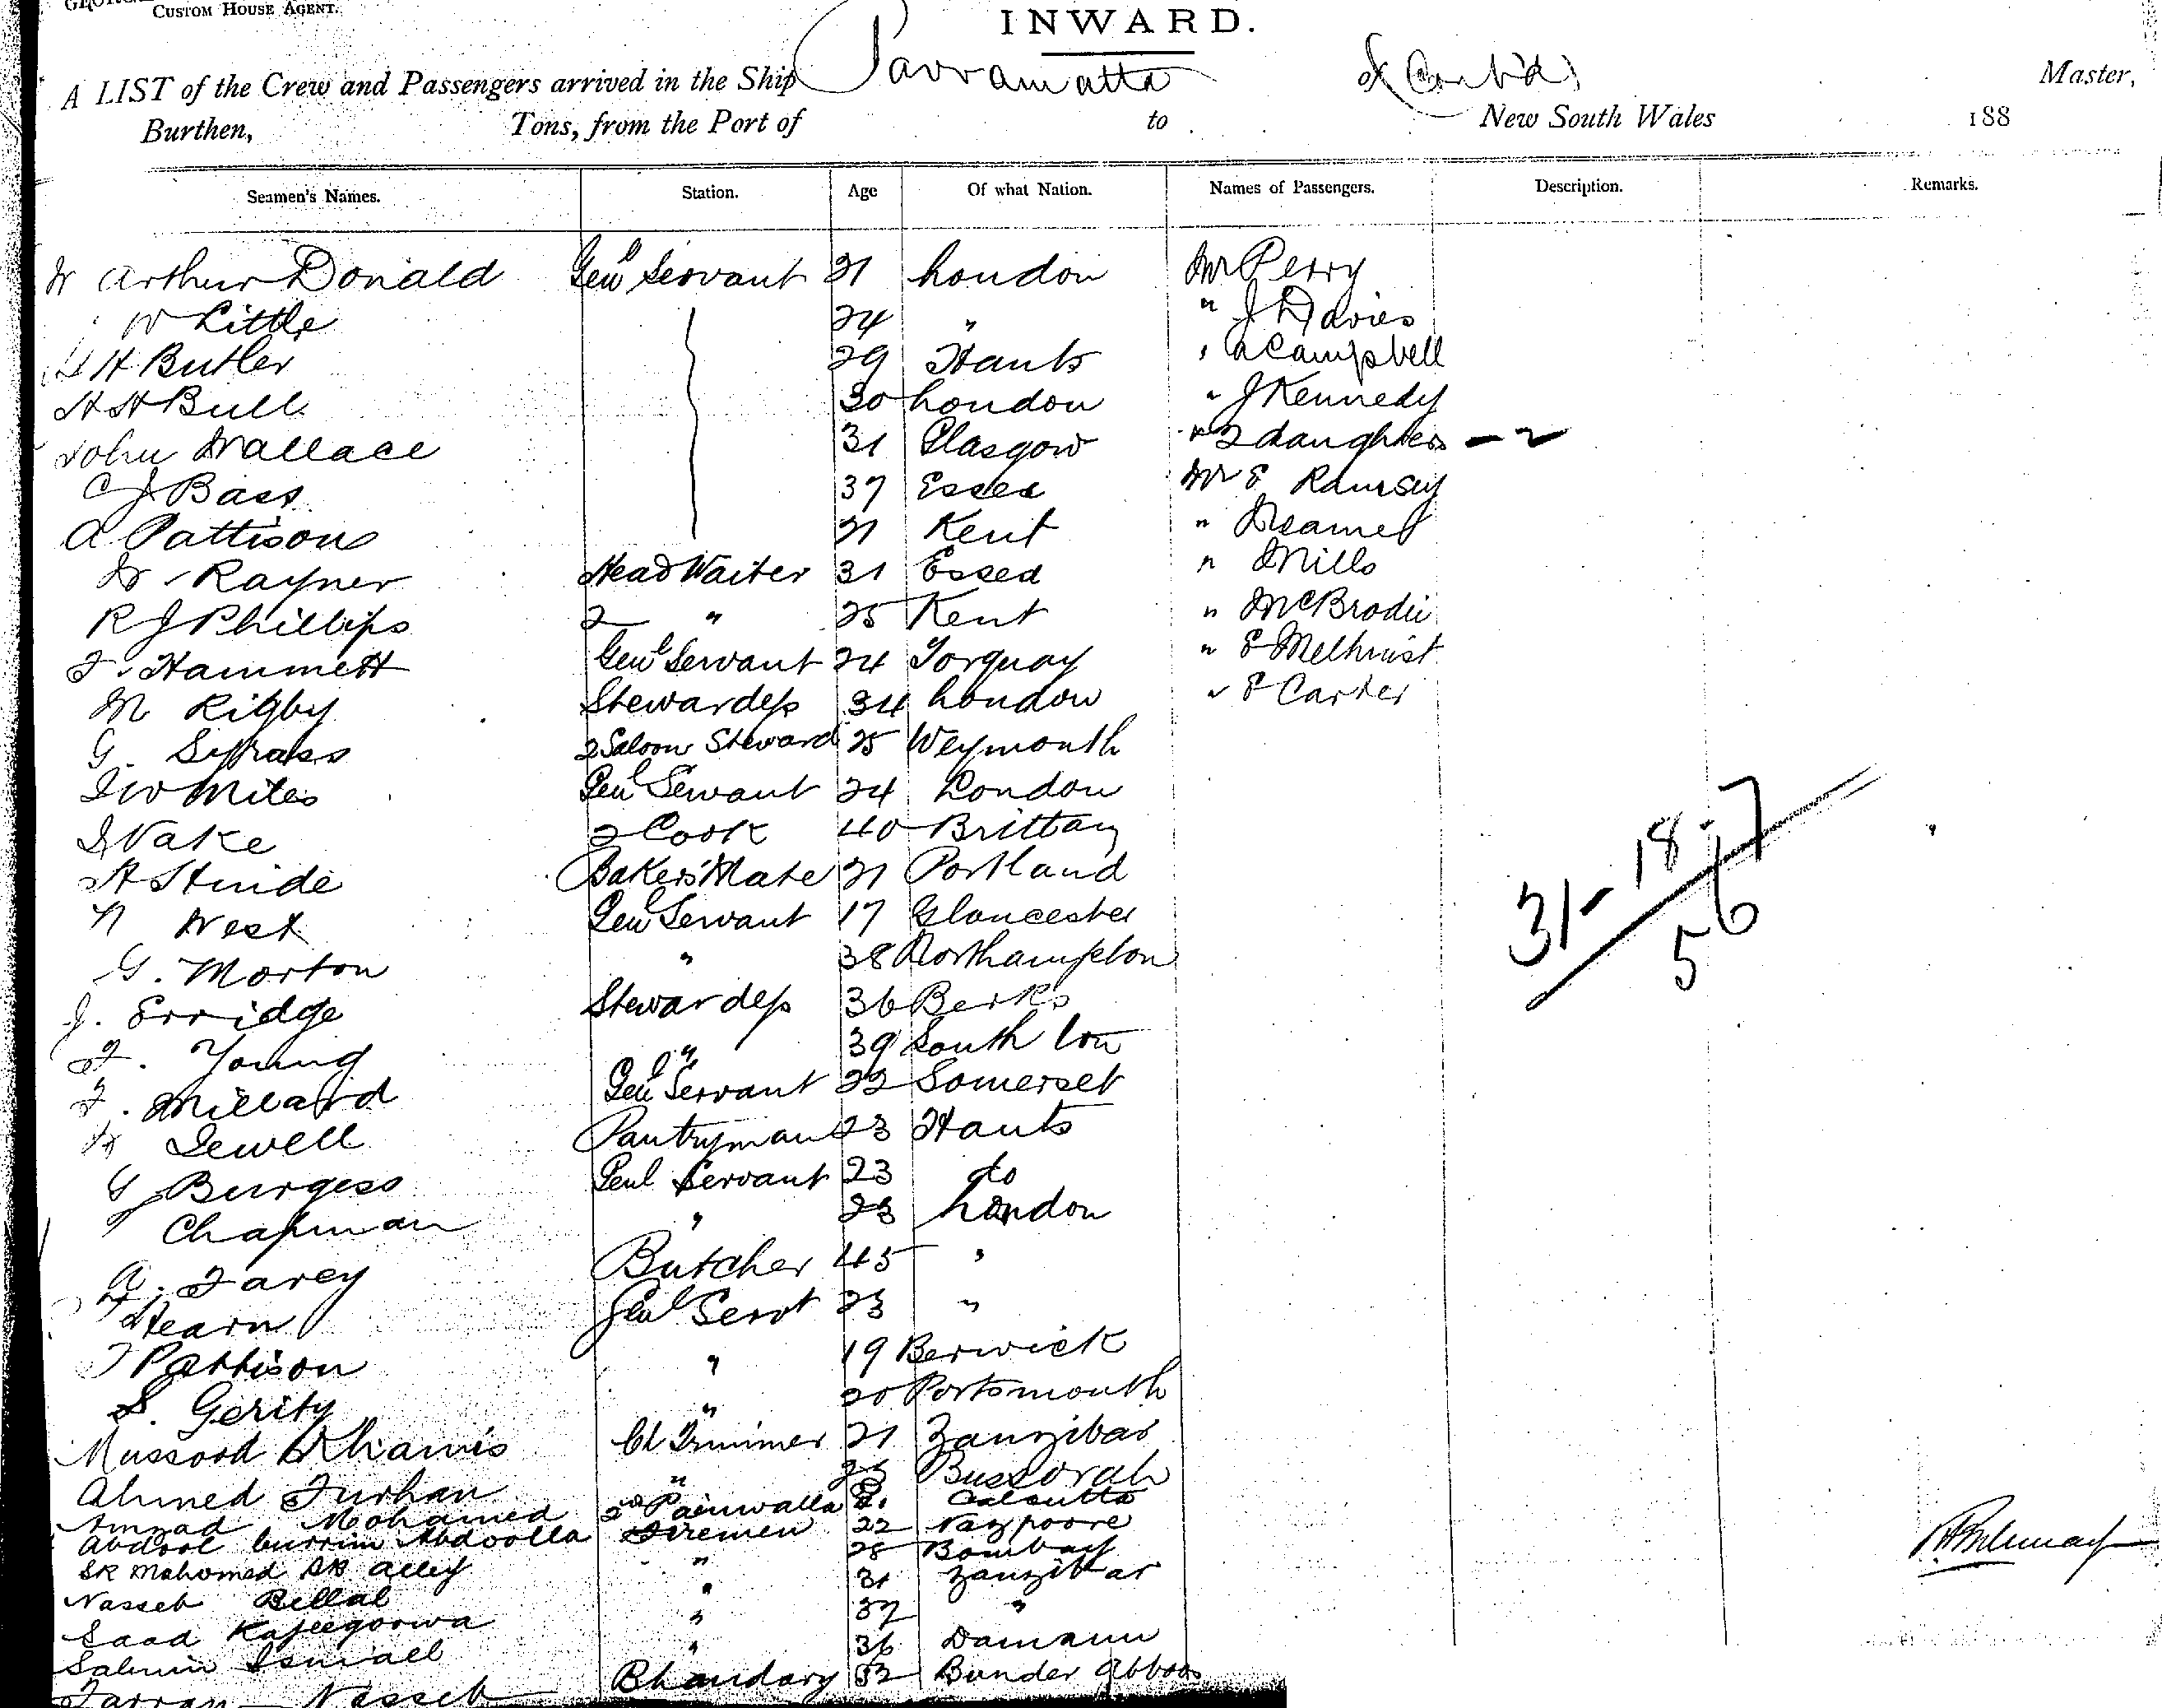 CUSTOM HOUSE AGENT.
INWARD.
A LIST of the Crew and Passengers arrived in the Ship Parramatta of (Cont'd) Master,
Burthen, Tons, from the Port of to New South Wales 188
Seamen's Names. Station. Age Of what Nation. Names of Passengers. Description. Remarks.
W Arthur Donald Genl Servant 21 London Mr Perry
W Little 24 " " J Davies
H Butler 29 Hants " A Campbell
H H Bull 30 London " J Kennedy
John Wallace 31 Glasgow " 2 daughters - 2
C J Bass 37 Essex Mr E Ramsey
A Pattison 21 Kent "
W Rayner Head Waiter 31 Essex " Mills
R J Phillips 2 " 25 Kent " McBrodie
F. Hammett Genl Servant 24 Torquay " E Melhuist
M Rigby Stewardess 34 London " E Carter
G. 2 Saloon Steward 25 Weymouth
J W Mites Genl Servant 24 London
J Vake 2 Cook 40 Brittany
H Stride Bakers Mate 21 Portland
N West Genl Servant 17 Gloucester
G. Morton " 38 Northampton
J. Erridge Stewardess 36 Berks
F. Young " 39 South
F. Millard Genl Servant 22 Somerset
Jewell Pantryman 23 Hants
G J Burgess Genl Servant 23 do
Chapman " 23 London
A. Farey Butcher 45 "
Hearn Genl Servt 23 "
T Pattison " 19 Berwick
S. Gerity " 20 Portsmouth
31-18-7
56
Mussood Khamis Cl Trimmer 21 Zanzibar
Ahmed Furhan " Bussorah
Amzad Mohamed 2nd Painwalla Calcutta
Abdool Currim Abdoolla Firemen 22 Nagpoore
SK Mahomed SK Alley " 28 Bombay
Nasseb Bellal " 31 Zanzibar
Saad Kajeegoowa " 37 "
Salmin Ismiael " 36 Damaun
Farran Nasseb Bhandary 52 Bunder Abboos